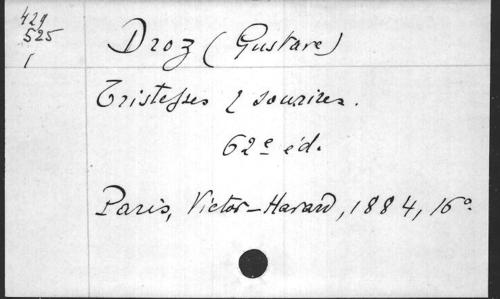 429
525
1
Droz (Gustave)
Tristesses & sourires.
62e éd.
Paris, Victor-Havard, 1884, 16°.